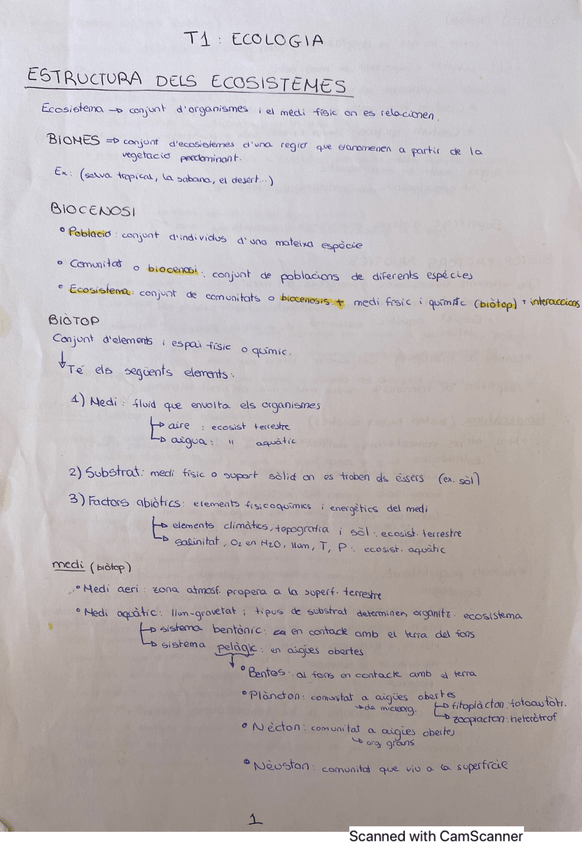 T1: ECOLOGIA
ESTRUCTURA DELS ECOSISTEMES
Ecosistema → conjunt d'organismes i el medi físic on es relacionen.
BIOMES ⇒ conjunt d'ecosistemes d'una regió que s'anomenen a partir de la
vegetació predominant.
Ex: (selva tropical, la sabana, el desert...)
BIOCENOSI
• Població: conjunt d'individus d'una mateixa espècie
• Comunitat o biocenosi: conjunt de poblacions de diferents espècies
• Ecosistema: conjunt de comunitats o biocenosis + medi físic i químic (biòtop) + interaccions
BIÒTOP
Conjunt d'elements i espai físic o químic.
↓ Té els següents elements:
1) Medi: fluid que envolta els organismes
↳ aire : ecosist terrestre
↳ aigua: " aquàtic
2) Substrat: medi físic o suport sòlid on es troben ds éssers (ex. sòl)
3) Factors abiòtics: elements fisicoquímics i energètics del medi
↳ elements climàtics, topografia i sòl: ecosist. terrestre
↳ salinitat, O2 en H2O, llum, T, P: ecosist. aquàtic
medi (biòtop)
• Medi aeri: zona atmosf. propera a la superf. terrestre
• Medi aquàtic: llum-gravetat i tipus de substrat determinen organitz. ecosistema
↳ sistema bentònic: en contacte amb el terra del fons
↳ sistema pelàgic: en aigües obertes
• Bentos: al fons en contacte amb el terra
• Plàncton: comunitat a aigües obertes
↳ de microorg.
↳ fitoplàcton: fotoautòtr.
↳ zooplacton: heteròtrof
• Nècton: comunitat a aigües obertes
↳ org grans
• Nèuston: comunitat que viu a la superfície
1
Scanned with CamScanner